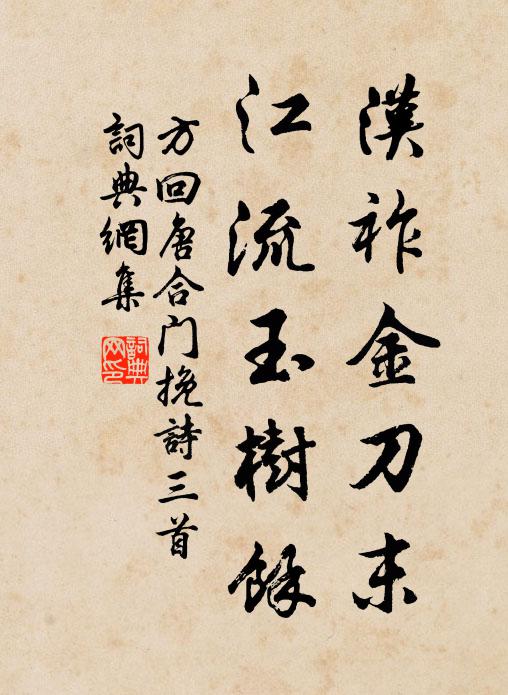 漢祚金刀末
江流玉樹餘
方回唐合门挽詩三首
詞典網集
詞典网印